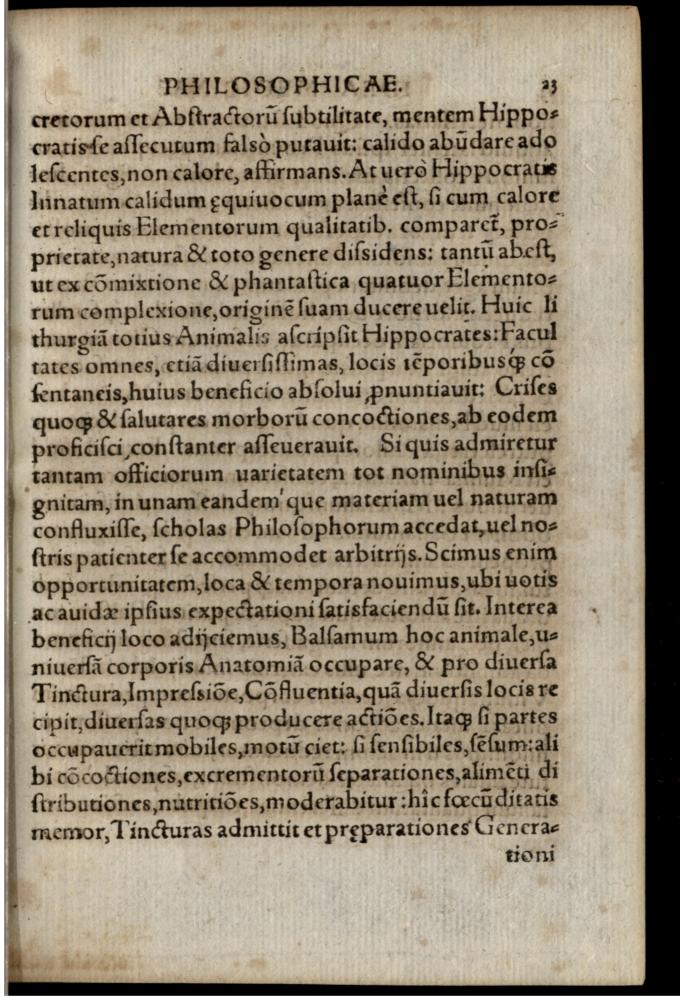 PHILOSOPHICAE. 23
cretorum et Abſtractorũ ſubtilitate, mentem Hippo⸗
cratis ſe aſſecutum falsò putauit: calido abũdare ado
leſcentes, non calore, affirmans. At uerò Hippocratis
Innatum calidum ęquiuocum planè eſt, ſi cum calore
et reliquis Elementorum qualitatib. comparet̃, pro⸗
prietate, natura & toto genere diſsidens: tantũ abeſt,
ut ex cõmixtione & phantaſtica quatuor Elemento⸗
rum complexione, originẽ ſuam ducere uelit. Huic li
thurgiã totius Animalis aſcripſit Hippocrates: Facul
tates omnes, etiã diuerſiſſimas, locis tẽporibusꝗ́ꝫ cõ
ſentaneis, huius beneficio abſolui ꝓnuntiauit: Criſes
quoqꝫ & ſalutares morborũ concoctiones, ab eodem
proficiſci, conſtanter aſſeuerauit. Si quis admiretur
tantam officiorum uarietatem tot nominibus inſi⸗
gnitam, in unam eandem'que materiam uel naturam
confluxiſſe, ſcholas Philoſophorum accedat, uel no⸗
ſtris patienter ſe accommodet arbitrijs. Scimus enim
opportunitatem, loca & tempora nouimus, ubi uotis
ac auidæ ipſius expectationi ſatisfaciendũ ſit. Interea
beneficij loco adijciemus, Balſamum hoc animale, u⸗
niuerſã corporis Anatomiã occupare, & pro diuerſa
Tinctura, Impreſsiõe, Cõfluentia, quã diuerſis locis re
cipit, diuerſas quoqꝫ producere actiões. Itaqꝫ ſi partes
occupauerit mobiles, motũ ciet: ſi ſenſibiles, ſẽſum: ali
bi cõcoctiones, excrementorũ ſeparationes, alimẽti di
ſtributiones, nutritiões, moderabitur: hîc fœcũditatis
memor, Tincturas admittit et pręparationes Genera⸗
tioni